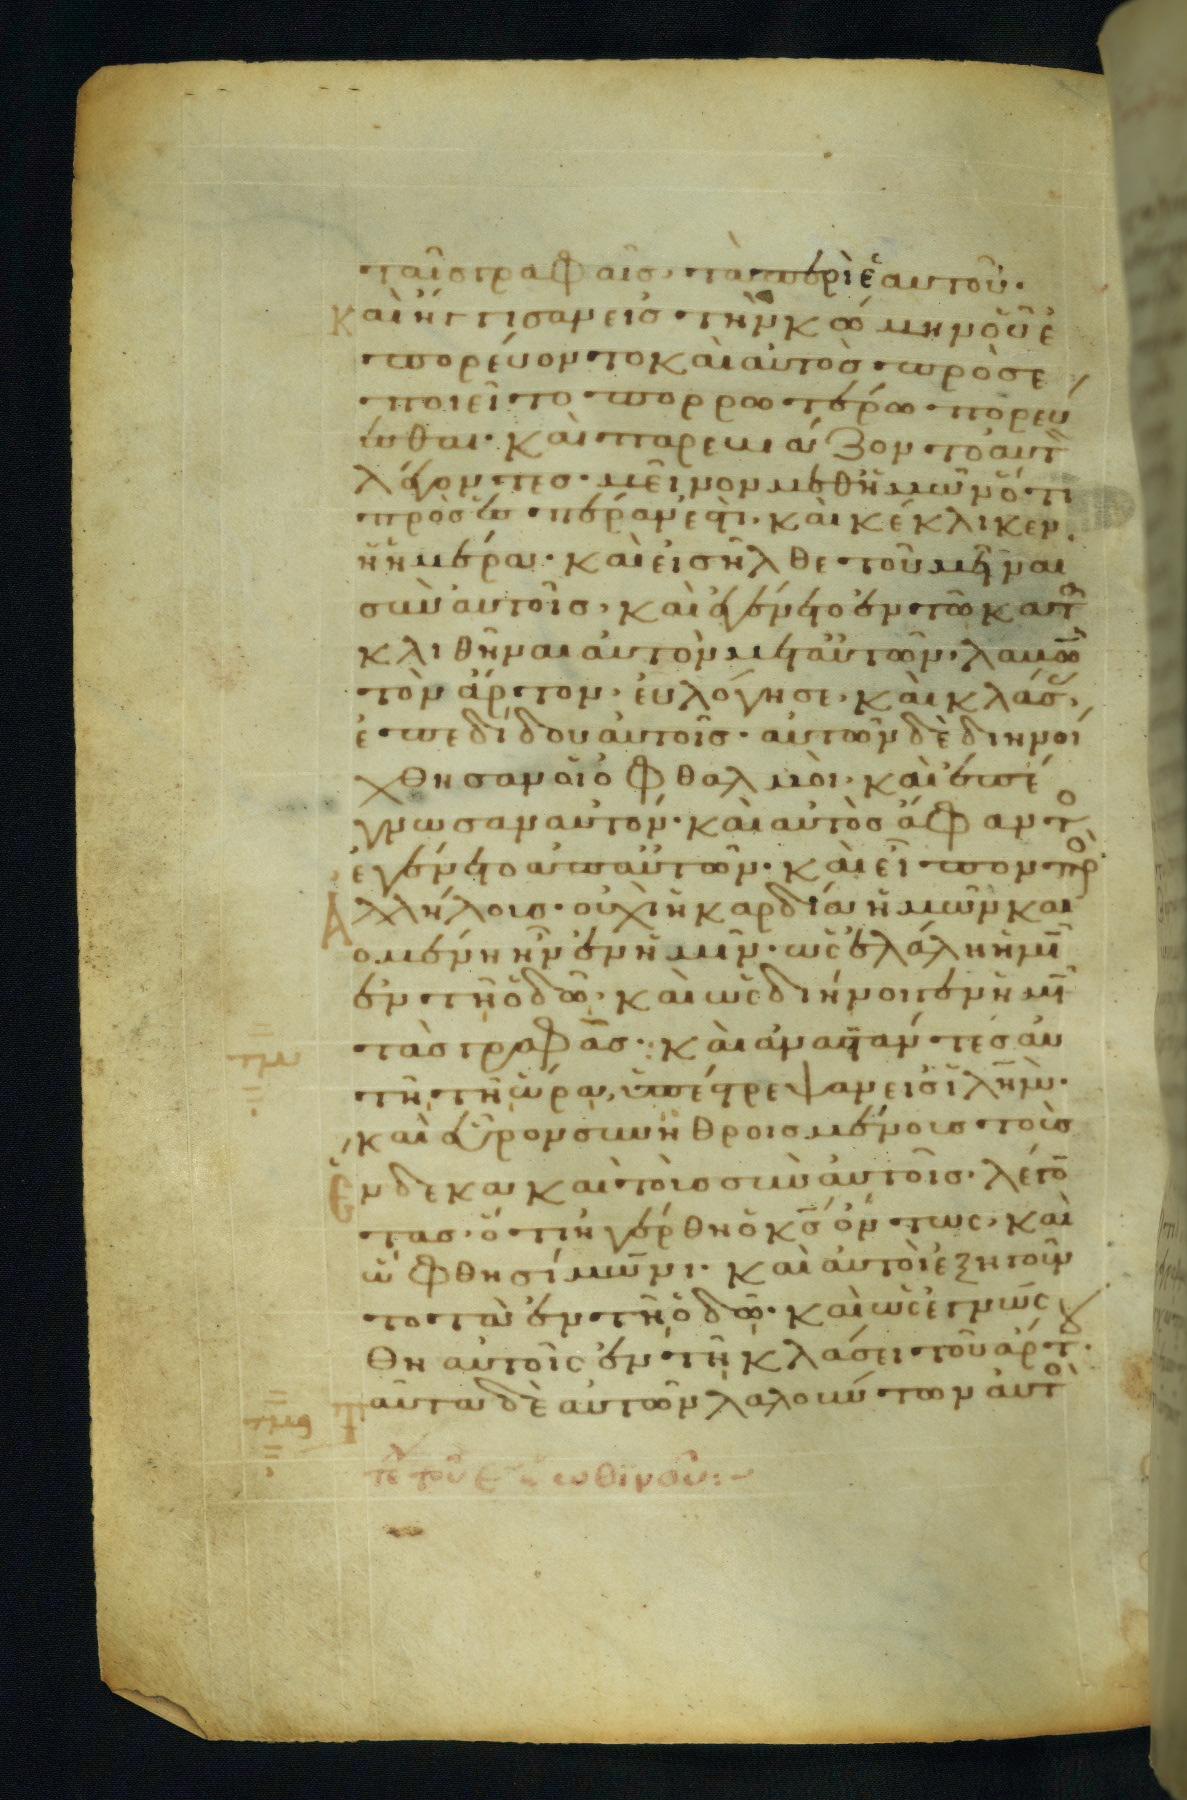 ταῖς γραφαῖς, τὰ περὶ ἑαυτοῦ.
καὶ ἤγγισαν εἰς τὴν κώμην οὗ ἐ
πορεύοντο καὶ αὐτὸς προσε
ποιεῖτο πορρωτέρω πορεύ
εσθαι. καὶ παρεβιάζοντο αὐτ
λέγοντες. μεῖνον μεθ ἡμῶν ὅτι
πρὸς ἑσπέραν ἐστὶ. καὶ κέκλικεν
ἡ ἡμέρα. καὶ εἰσῆλθε τοῦ μεῖναι
σὺν αὐτοῖς, καὶ ἐγένετο ἐν τῶ κατ
κλιθῆναι αὐτὸν μετ αὐτῶν. λαβὼ
τὸν ἄρτον. εὐλόγησε, καὶ κλάσ,
ἐπεδίδου αὐτοῖς. αὐτῶν δὲ διηνοί
χθησαν οἱ ὀφθαλμοὶ. καὶ ἐπέ
γνωσαν αὐτόν. καὶ αὐτὸς ἄφαντο
ἐγένετο ἀπ αὐτῶν. καὶ εἶπον πρὸ
ἀλλήλους. οὐχὶ ἡ καρδία ἡμῶν και
ομένη ἦν ἐν ἡμῖν. ὡς ἐλάλη ἡμῖ
ἐν τῆ ὁδῶ, καὶ ὡς διήνοιγεν ἡμῖ
τὰς γραφάς. καὶ ἀναστάντες αὐ
τῆ τῆ ὥρα, ὑπέστρεψαν εἰς ἱλημ.
καὶ εὗρον συνηθροισμένους τοὺς
ἕνδεκα καὶ τοὺς σὺν αὐτοῖς. λέγο
τας. ὅτι ἠγέρθη ὁ κς ὄντως, καὶ
ὤφθη σίμωνι. καὶ αὐτοὶ ἐξηγοῦν
το τὰ ἐν τῆ ὁδῶ. καὶ ὡς ἐγνώσ
θη αὐτοῖς ἐν τῆ κλάσει τοῦ ἄρτ.
ταῦτα δὲ αὐτῶν λαλούντων αὐτὸ
τε τοῦ ἑωθινοῦ:
τμ
τμα